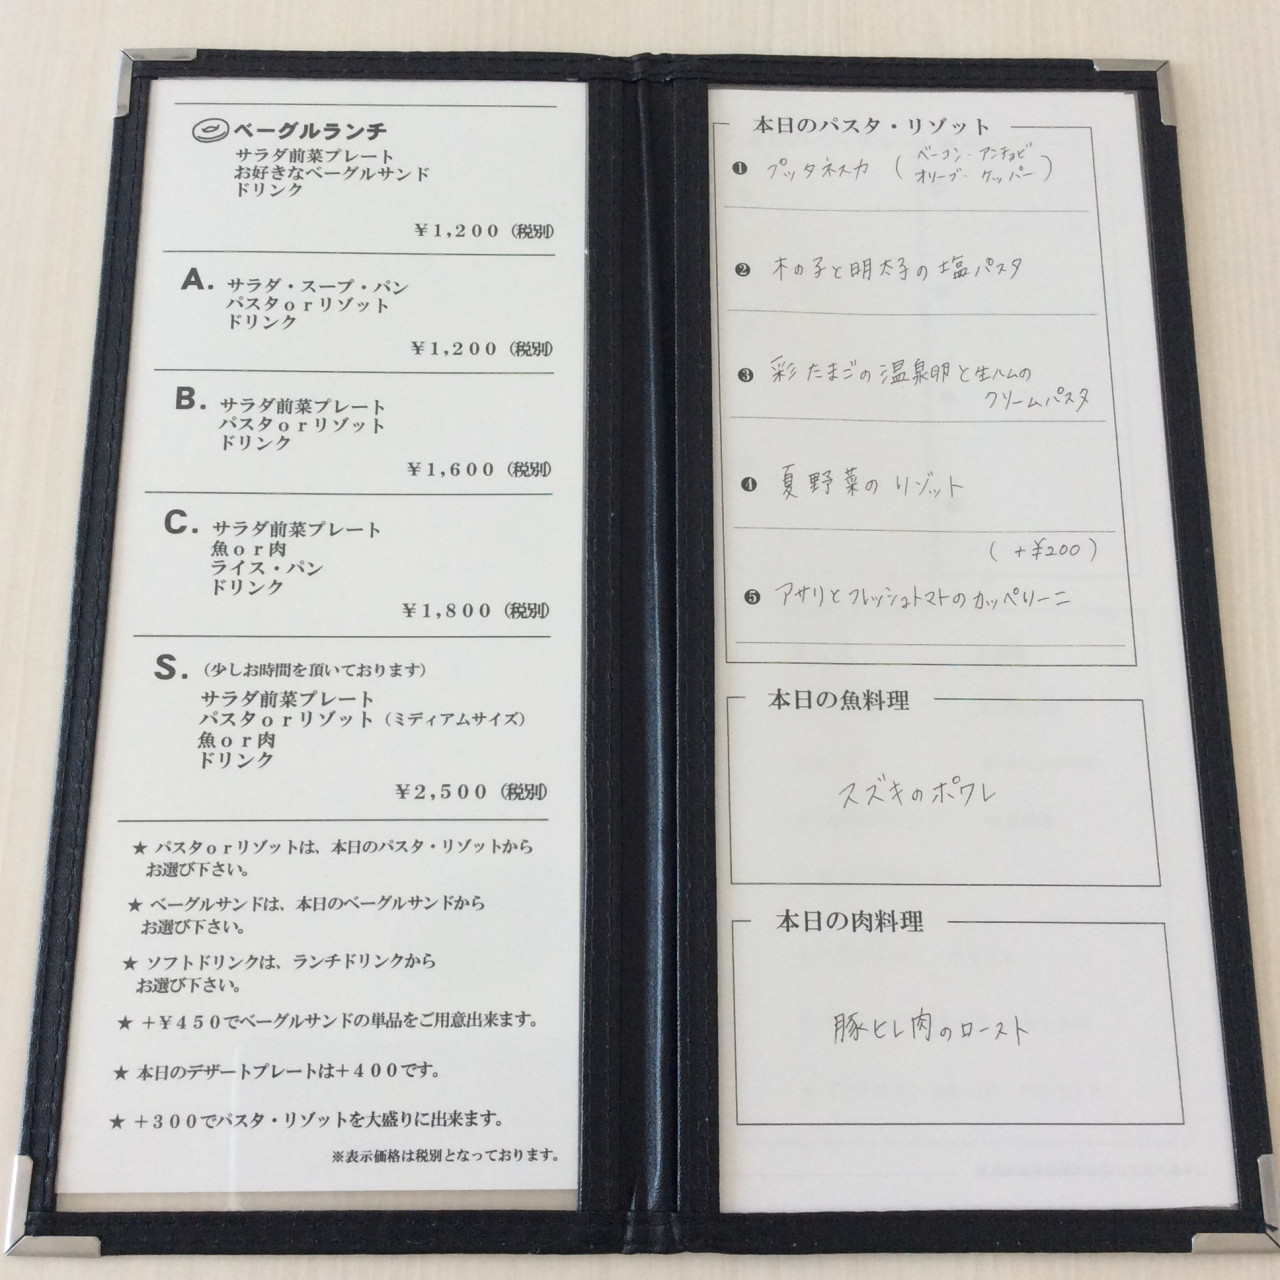 ベーグルランチ
サラダ前菜プレート
お好きなベーグルサンド
ドリンク
￥1,200（税別）
A. サラダ・スープ・パン
パスタｏｒリゾット
ドリンク
￥1,200（税別）
B. サラダ前菜プレート
パスタｏｒリゾット
ドリンク
￥1,600（税別）
C. サラダ前菜プレート
魚ｏｒ肉
ライス・パン
ドリンク
￥1,800（税別）
S.（少しお時間を頂いております）
サラダ前菜プレート
パスタｏｒリゾット（ミディアムサイズ）
魚ｏｒ肉
ドリンク
￥2,500（税別）
★ パスタｏｒリゾットは、本日のパスタ・リゾットから
お選び下さい。
★ ベーグルサンドは、本日のベーグルサンドから
お選び下さい。
★ ソフトドリンクは、ランチドリンクから
お選び下さい。
★ ＋￥４５０でベーグルサンドの単品をご用意出来ます。
★ 本日のデザートプレートは＋４００です。
★ ＋３００でパスタ・リゾットを大盛りに出来ます。
※表示価格は税別となっております。
本日のパスタ・リゾット
❶ プッタネスカ（ベーコン・アンチョビ
オリーブ・ケッパー）
❷ 木の子と明太子の塩パスタ
❸ 彩たまごの温泉卵と生ハムの
クリームパスタ
❹ 夏野菜のリゾット
（+¥200）
❺ アサリとフレッシュトマトのカッペリーニ
本日の魚料理
スズキのポワレ
本日の肉料理
豚ヒレ肉のロースト